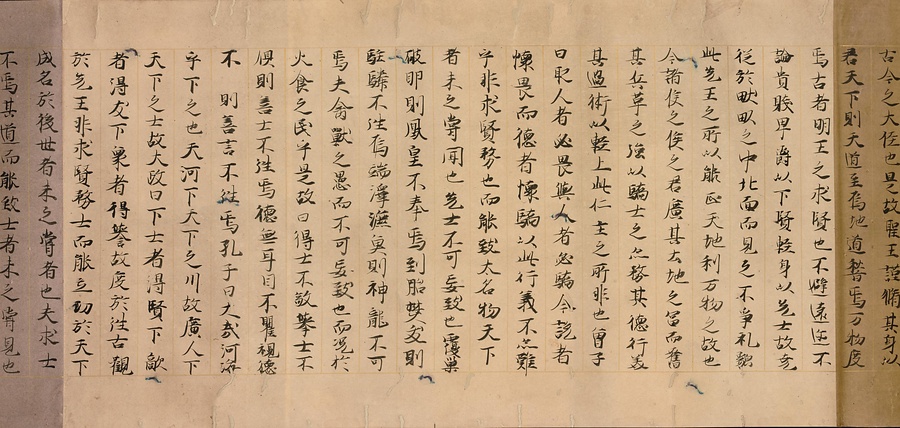 古今之大任也是故聖王謹脩其身以
君天下則天道至焉地道稽焉万物度
焉古者明王之求賢也不避遠迩不
論貴賤卑爵以下賢輕身以先士故尭
従於畎畒之中北面而見之不爭礼貌
此先王之所以能正天地利万物之故也
今諸侯之君廣其土地之冨而奮
其兵革之強以驕士之亦務其德行義
其道術以輕上此仁主之所非也曽子
曰取人者必畏與人者必驕今說者
懐畏而德者懐驕以此行義不亦難
乎非求賢務也而能致大名物天下
者未之嘗聞也先士不可妄致也覆巣
破卵則鳳皇不奉焉刳胎焚夭則
騏驎不往焉竭澤漁則神龍不可
焉夫禽獸之愚而不可妄致也而况於
火食之民乎是故曰得士不敬舉士不
則善士不往焉德無耳目不瞿視德
不則善言不往焉孔子曰大哉河海
乎下之也夫河下天下之川故廣人下
天下之士故大故曰下士者得賢下敵
者得友下衆者得誉故度於往古觀
於先王非求賢務士而能立功於天下
成名於後世者未之嘗者也夫求士
不焉其道而能致士者未之嘗見也